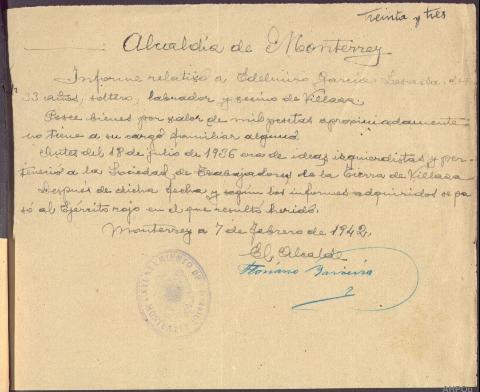 Treinta y tres
Alcaldía de Monterrey
Informe relativo a Edelmiro García de
33 años, soltero, labrador y vecino de Villaza
Posee bienes por valor de mil pesetas apropiniadamente
no tiene a su cargo familiar alguno
Antes del 18 de julio de 1936 era de ideas izquierdistas y per-
tenecio a la Sociedad de Trabajadores de la Tierra de Villaza
Despues de dicha fecha y según los informes adquiridos se pa
só al Ejército rojo en el que resultó herido.
Monterrey a 7 de febrero de 1942
El Alcalde
AYUNTAMIENTO DE
AHPOu